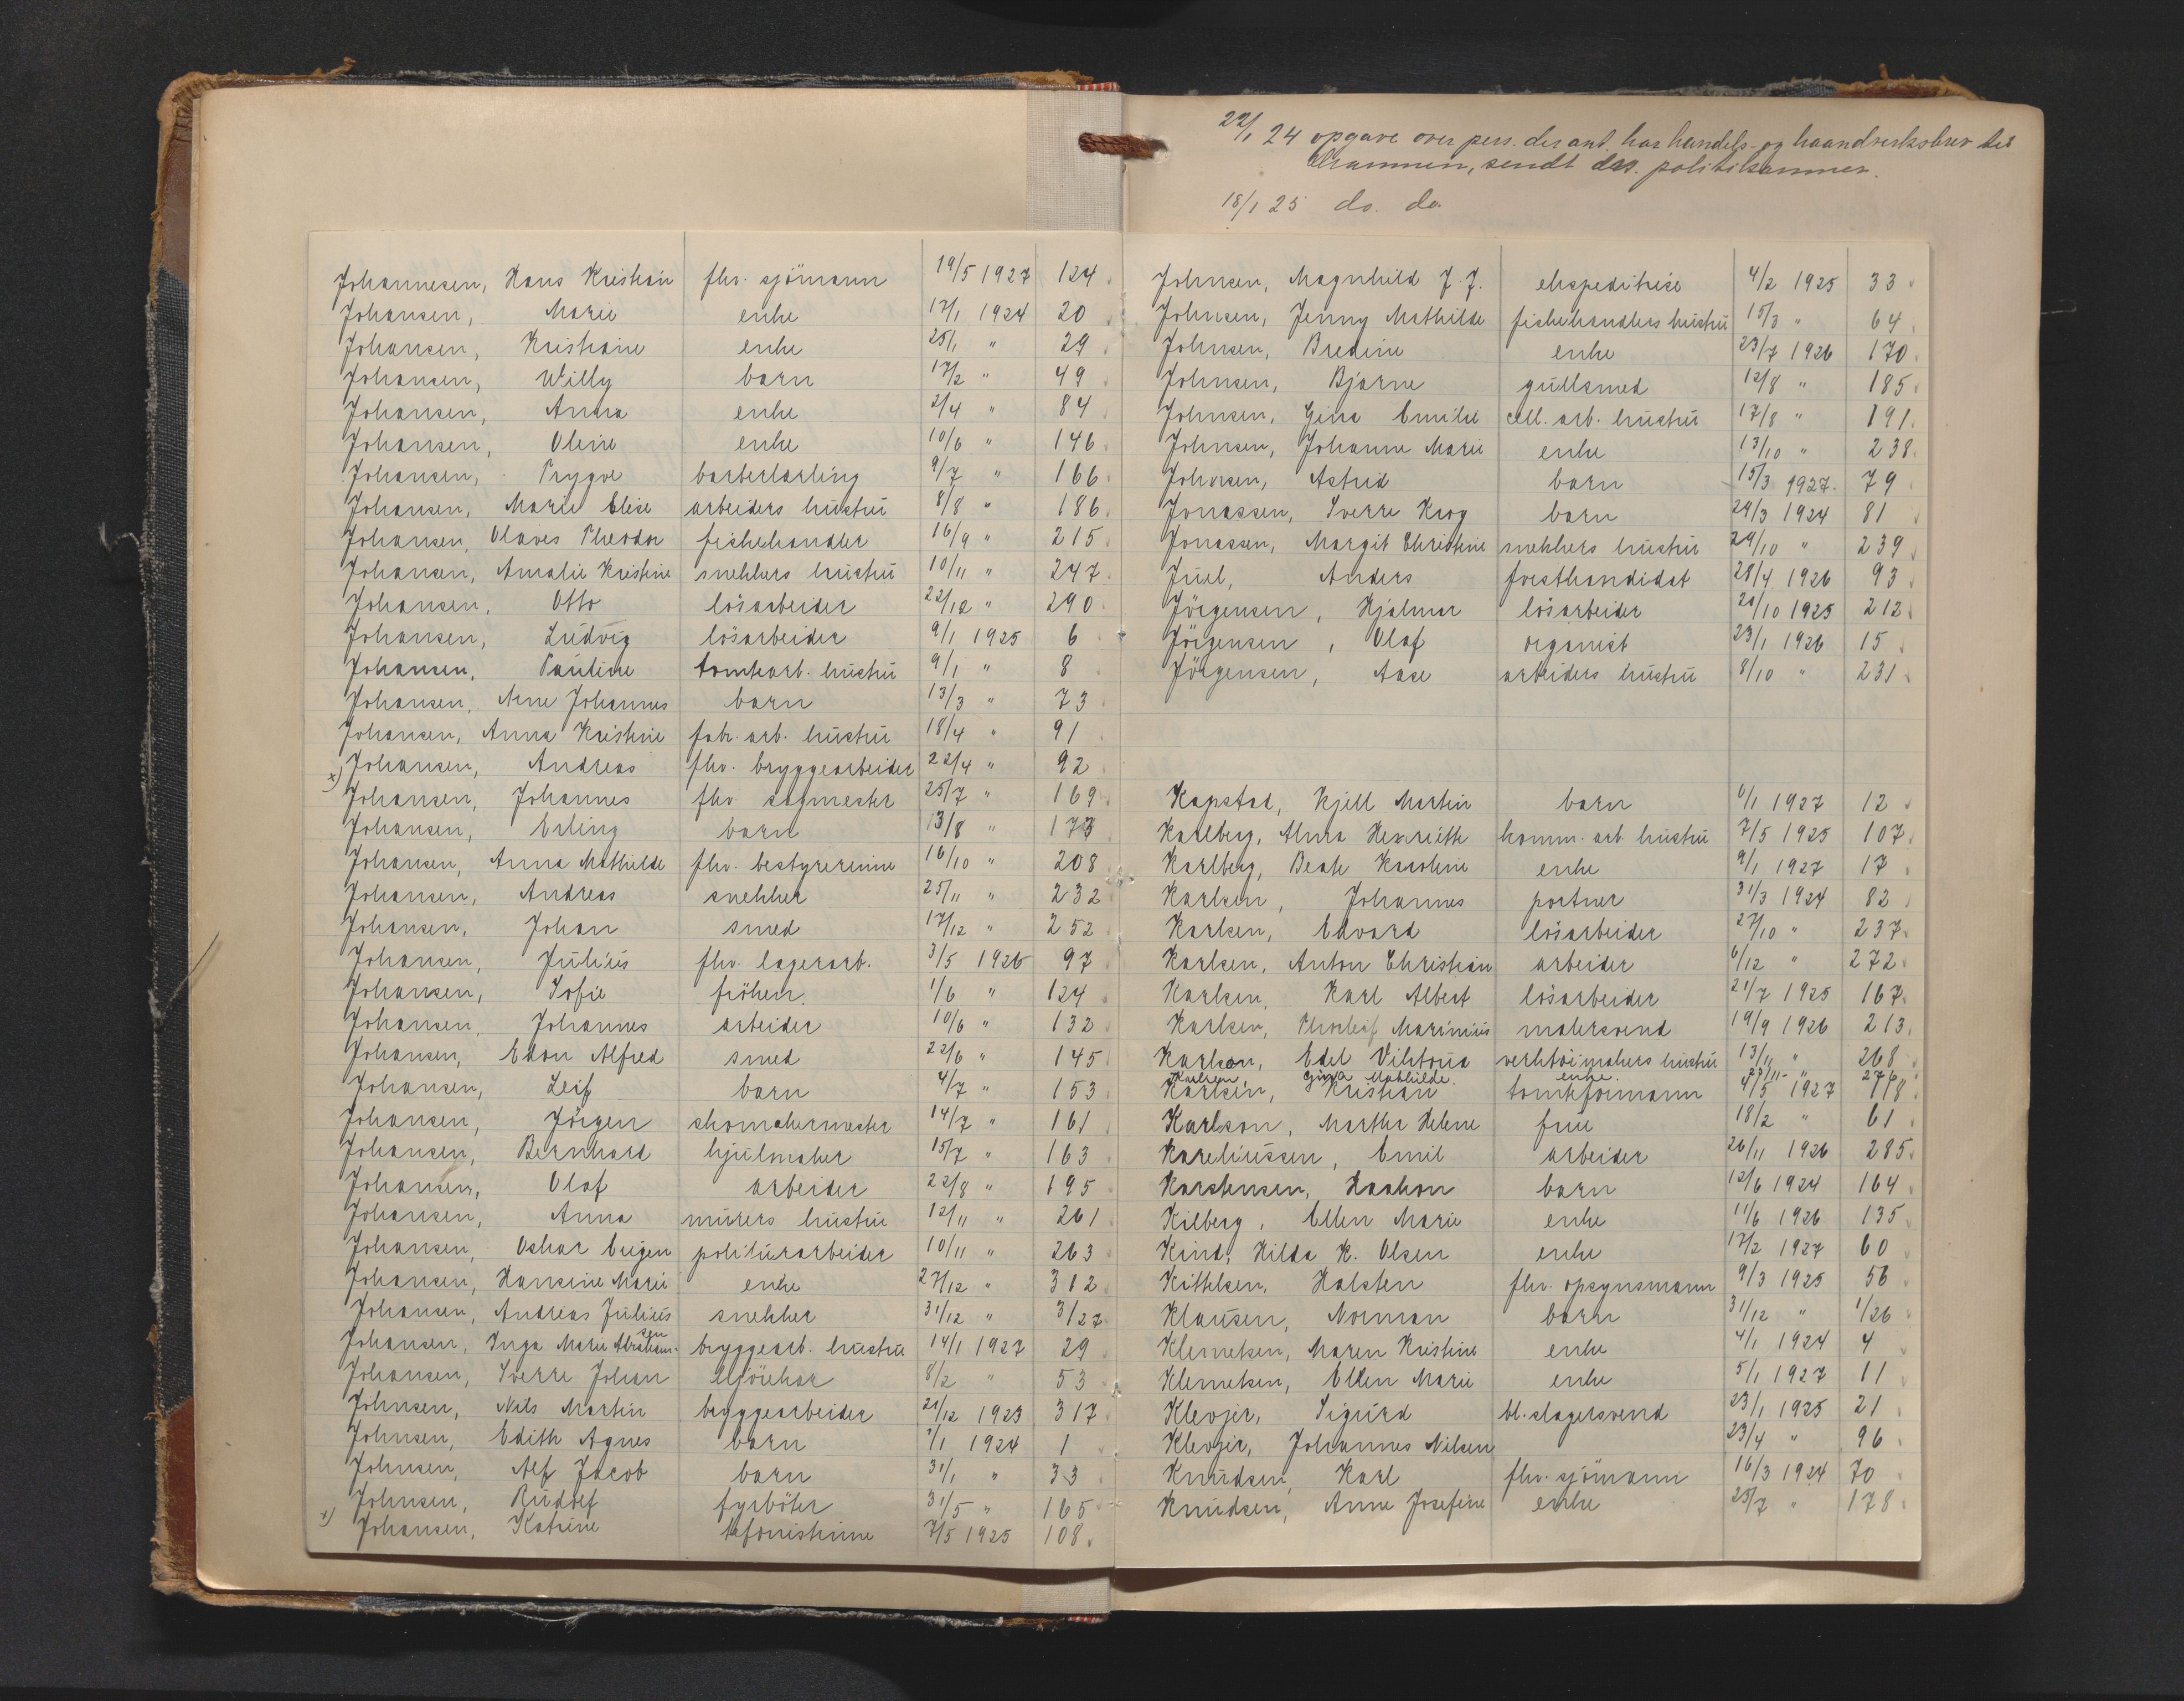 22/1 24 opgave over pers. der ant. har handels- og haandverksbrev til
Drammen, sendt politikammer.
18/1 25 do. do.
Johannesen, Hans Kristian fhv. sjömann 19/5 1927 124
Johansen, Marie enke 17/1 1924 20
Johansen, Kristiane enke 25/1 " 29
Johansen, Willy barn 17/2 " 49
Johansen, Anna enke 2/4 " 84
Johansen, Oline enke 10/6 " 146
Johansen, Trygve barberlærling 9/7 " 166
Johansen, Marie Elise arbeiders hustru 8/8 " 186
Johansen, Olaves Theodor fiskehandler 16/9 " 215
Johansen, Amalie Kristine snekkers hustru 10/11 " 247
Johansen, Otto lösarbeider 22/12 " 290
Johansen, Ludvig lösarbeider 9/1 1925 6
Johansen, Pauline tomtearb. hustru 9/1 " 8
Johansen, Arne Johannes barn 13/3 " 73
Johansen, Anna Kristine fabr. arb. hustru 18/4 " 91
x) Johansen, Andreas fhv. bryggearbeider 22/4 " 92
Johansen, Johannes fhv sagmester 25/7 " 169
Johansen, Erling barn 13/8 " 173
Johansen, Anna Mathilde fhv. bestyrerinne 16/10 " 208
Johansen, Andreas snekker 25/11 " 232
Johansen, Johan smed 17/12 " 252
Johansen, Julius fhv. lagerarb. 3/5 1926 97
Johansen, Sofie fröken. 1/6 " 124
Johansen, Johannes arbeider 10/6 " 132
Johansen, Edon Alfred smed 22/6 " 145
Johansen, Leif barn 4/7 " 153
Johansen, Jörgen skomakermester 14/7 " 161
Johansen, Bernhard hjulmaker 15/7 " 163
Johansen, Olaf arbeider 22/8 " 195
Johansen, Anna murers hustru 12/11 " 261
Johansen, Oskar Eugen politurarbeider 10/11 " 263
Johansen, Hansine Marie enke 27/12 " 312
Johansen, Andreas Julius snekker 31/12 " 3/27
Johansen, Inga Marie Abraham-sen bryggearb. hustru 14/1 1927 29
Johansen, Sverre Johan sjörhar 8/2 " 53
Johnsen, Nils Martin bryggearbeider 21/12 1923 317
Johnsen, Edith Agnes barn 1/1 1924 1
Johnsen, Alf Jacob barn 31/1 " 33
Johnsen, Rudolf fyrböter 31/5 " 165
x) Johansen, Katrine tlfonistinne 7/5 1925 108
Johnsen, Magnhild J. J. ekspeditrise 4/2 1925 33
Johnsen, Jenny Mathilde fiskehandlers hustru 15/3 " 64
Johnsen, Bredine enke 23/7 1926 170
Johnsen, Bjarne gullsmed 12/8 " 185
Johnsen, Gina Emilie cell. arb. hustru 17/8 " 191
Johnsen, Johanne Marie enke 13/10 " 238
Johnsen, Astrid barn 15/3 1927 79
Jonassen, Sverre Krog barn 24/3 1924 81
Jonassen, Margit Christine snekkers hustru 29/10 " 239
Juel, Anders forstkandidat 28/4 1926 93
Jörgensen, Hjalmar lösarbeider 21/10 1925 212
Jörgensen, Olaf organist 23/1 1926 15
Jörgensen, Aase arbeiders hustru 8/10 " 231
Kapstad, Kjell Martin barn 6/1 1927 12
Karlberg, Alma Henriette komm. arb hustru 7/5 1925 107
Karlberg, Beate Karoline enke 9/1 1927 17
Karlsen, Johannes portner 31/3 1924 82
Karlsen, Edvard lösarbeider 27/10 " 237
Karlsen, Anton Christian arbeider 6/12 " 272
Karlsen, Karl Albert lösarbeider 21/7 1925 167
Karlsen, Thorleif Marinius malersvend 19/9 1926 213
Karlson, Edel Viktoria verktöimakers hustru 13/11 " 268
Karlsen, Gina Mathilde. enke. 23/11 - " 276
Karlsen, Kristian tomteformann 4/5 1927 118
Karlson, Martha Helene frue 18/2 " 61
Kareliussen, Emil arbeider 26/11 1926 285
Karstensen, Haakon barn 12/6 1924 164
Kilberg, Ellen Marie enke 11/6 1926 135
Kind, Hilda K. Olsen enke 17/2 1927 60
Kittelsen, Halsten fhv. opsynsmann 9/3 1925 56
Klausen, Norman barn 31/12 " 1/26
Klemetsen, Maren Kristine enke 4/1 1924 4
Klemetsen, Ellen Marie enke 5/1 1927 11
Klevjer, Sigurd bl. slagersvend 23/1 1925 21
Klevjer, Johannes Nilsen 23/4 " 96
Knudsen, Karl fhv. sjömann 16/3 1924 70
Knudsen, Anne Josefine enke 25/7 " 178